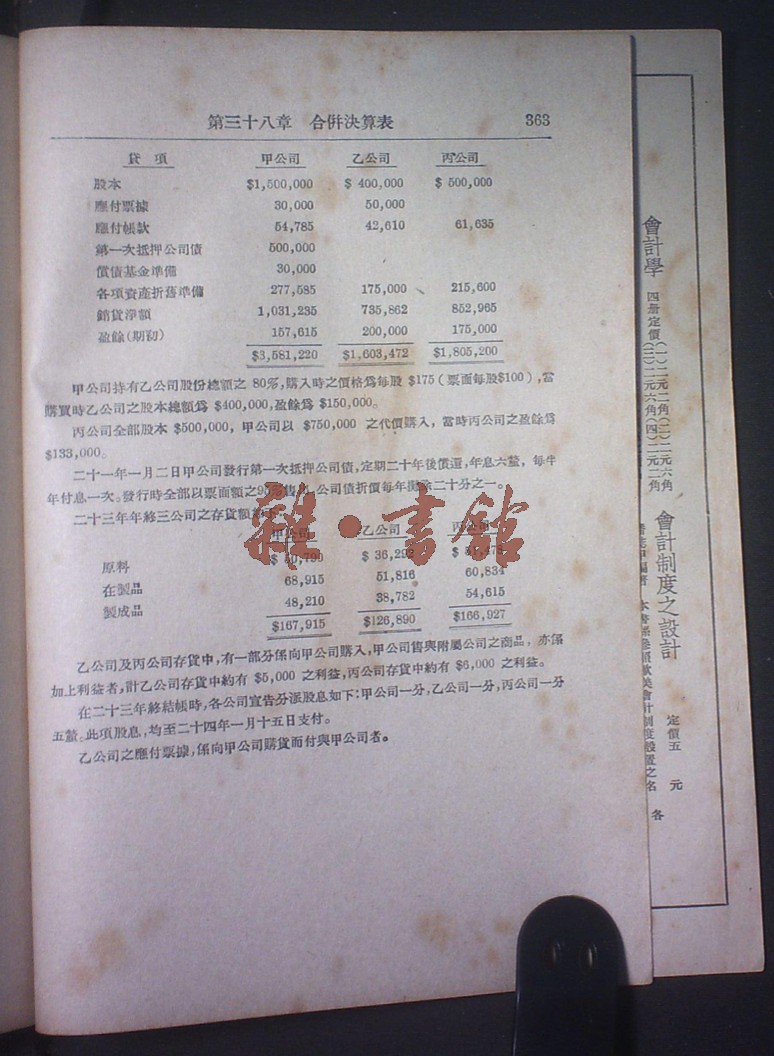 第三十八章 合併決算表 363
貸項 甲公司 乙公司 丙公司
股本 $1,500,000 $ 400,000 $ 500,000
應付票據 30,000 50,000
應付帳款 54,785 42,610 61,635
第一次抵押公司債 500,000
償債基金準備 30,000
各項資產折舊準備 277,585 175,000 215,600
銷貨淨額 1,031,235 735,862 852,965
盈餘(期初) 157,615 200,000 175,000
$3,581,220 $1,603,472 $1,805,200
甲公司持有乙公司股份總額之 80%,購入時之價格爲每股 $175(票面每股$100),當
購買時乙公司之股本總額爲 $400,000,盈餘爲 $150,000。
丙公司全部股本 $500,000, 甲公司以 $750,000 之代價購入, 當時丙公司之盈餘爲
$133,000。
二十一年一月二日甲公司發行第一次抵押公司債,定期二十年後償還,年息六釐,每半
年付息一次。發行時全部以票面額之 售出,公司債折價每年攤除二十分之一。
二十三年年終三公司之存貨額如下:
甲公司 乙公司 丙公司
原料 $ 36,292
在製品 68,915 51,816 60,834
製成品 48,210 38,782 54,615
$167,915 $126,890 $166,927
乙公司及丙公司存貨中,有一部分係向甲公司購入,甲公司售與附屬公司之商品, 亦係
加上利益者,計乙公司存貨中約有 $5,000 之利益,丙公司存貨中約有 $6,000 之利益。
在二十三年終結帳時,各公司宣告分派股息如下:甲公司一分,乙公司一分,丙公司一分
五釐。此項股息,均至二十四年一月十五日支付。
乙公司之應付票據,係向甲公司購貨而付與甲公司者。
雜·書館
會計學 四册定價(一)二元二角(二)二元六角
(三)二元六角(四)二元二角
會計制度之設計 定價五元
本書係參照歐美會計制度設置之名
各